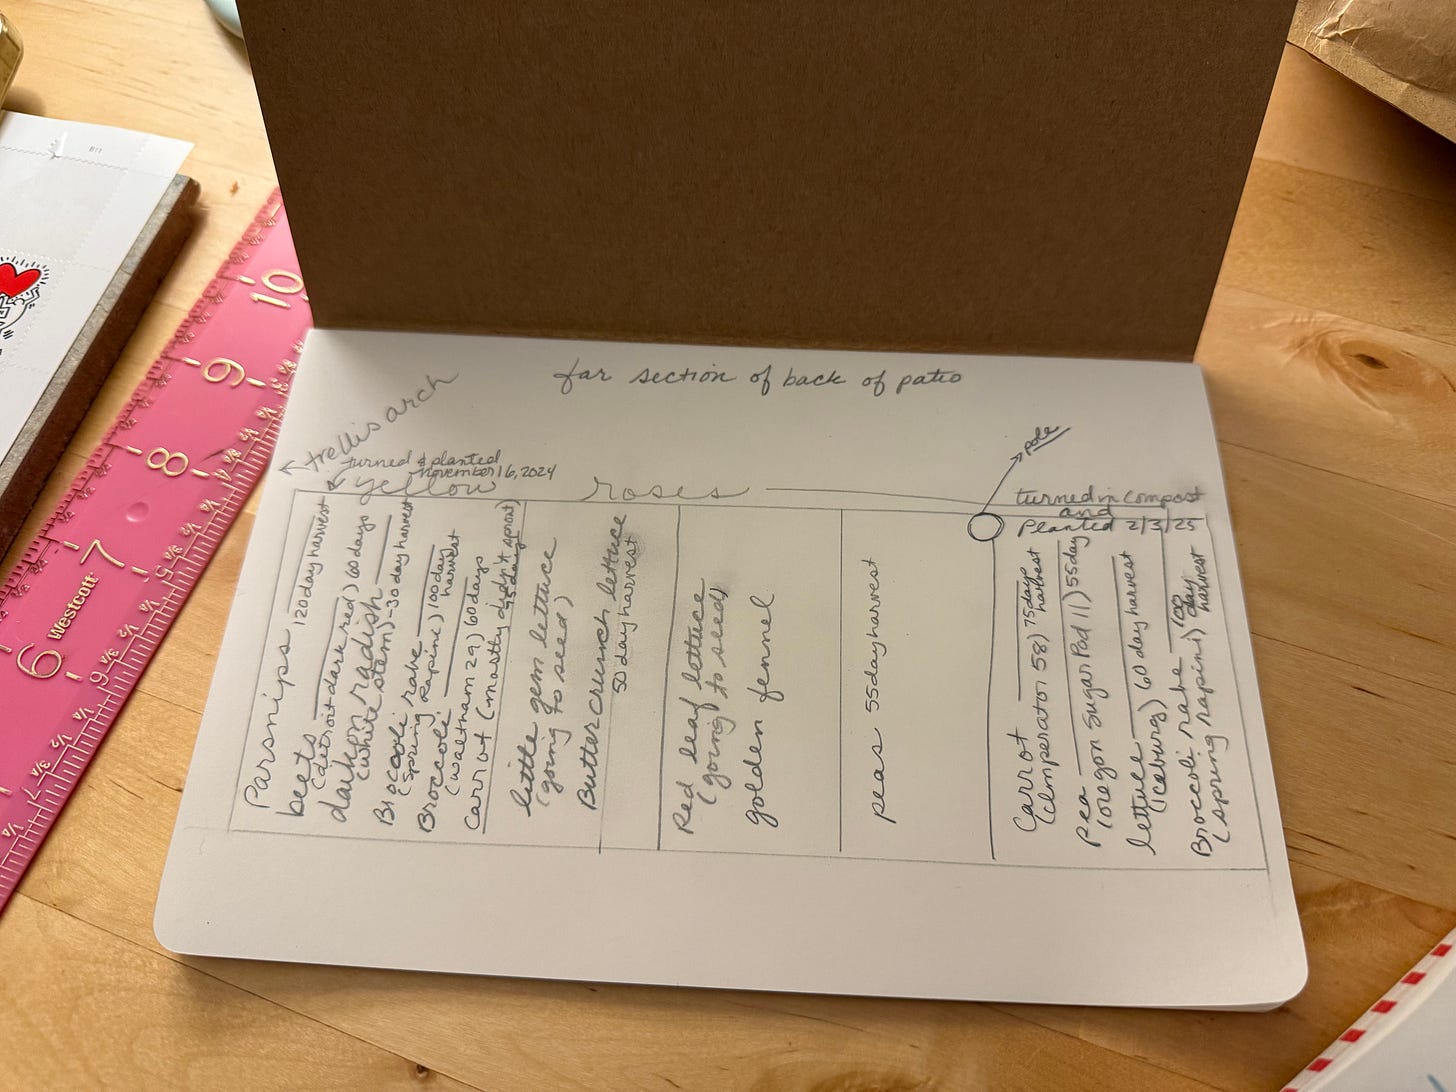 far section of back of patio
← trellis arch
turned & planted
november 16, 2024
yellow roses
pole
turned in compost
and
Planted 2/3/25
Parsnips 120 day harvest
beets
(detroit dark red) 60 days
daikon radish
(white stem) - 30 day harvest
Broccoli rabe
(Spring Rapine) 100 day
harvest
Broccoli
(waltham 29) 60 days
Carrot (mostly didn't sprout)
75 days
little gem lettuce
(going to seed)
Buttercrunch lettuce
50 day harvest
Red leaf lettuce
(going to seed)
golden fennel
peas 55 day harvest
Carrot
(emperator 58) 75 days
harvest
pea
(oregon Sugar Pad 11) 55 day
lettuce 60 day harvest
(iceburg)
Broccoli rabe 100
day
harvest
(spring rapini)
10
9
8
7
6
Westcott